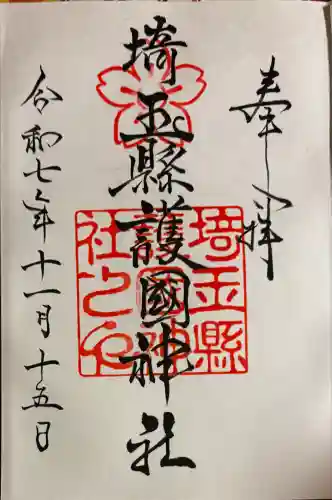 奉拝
埼玉縣護國神社
令和七年十一月十五日
埼玉縣
護國神
社之印